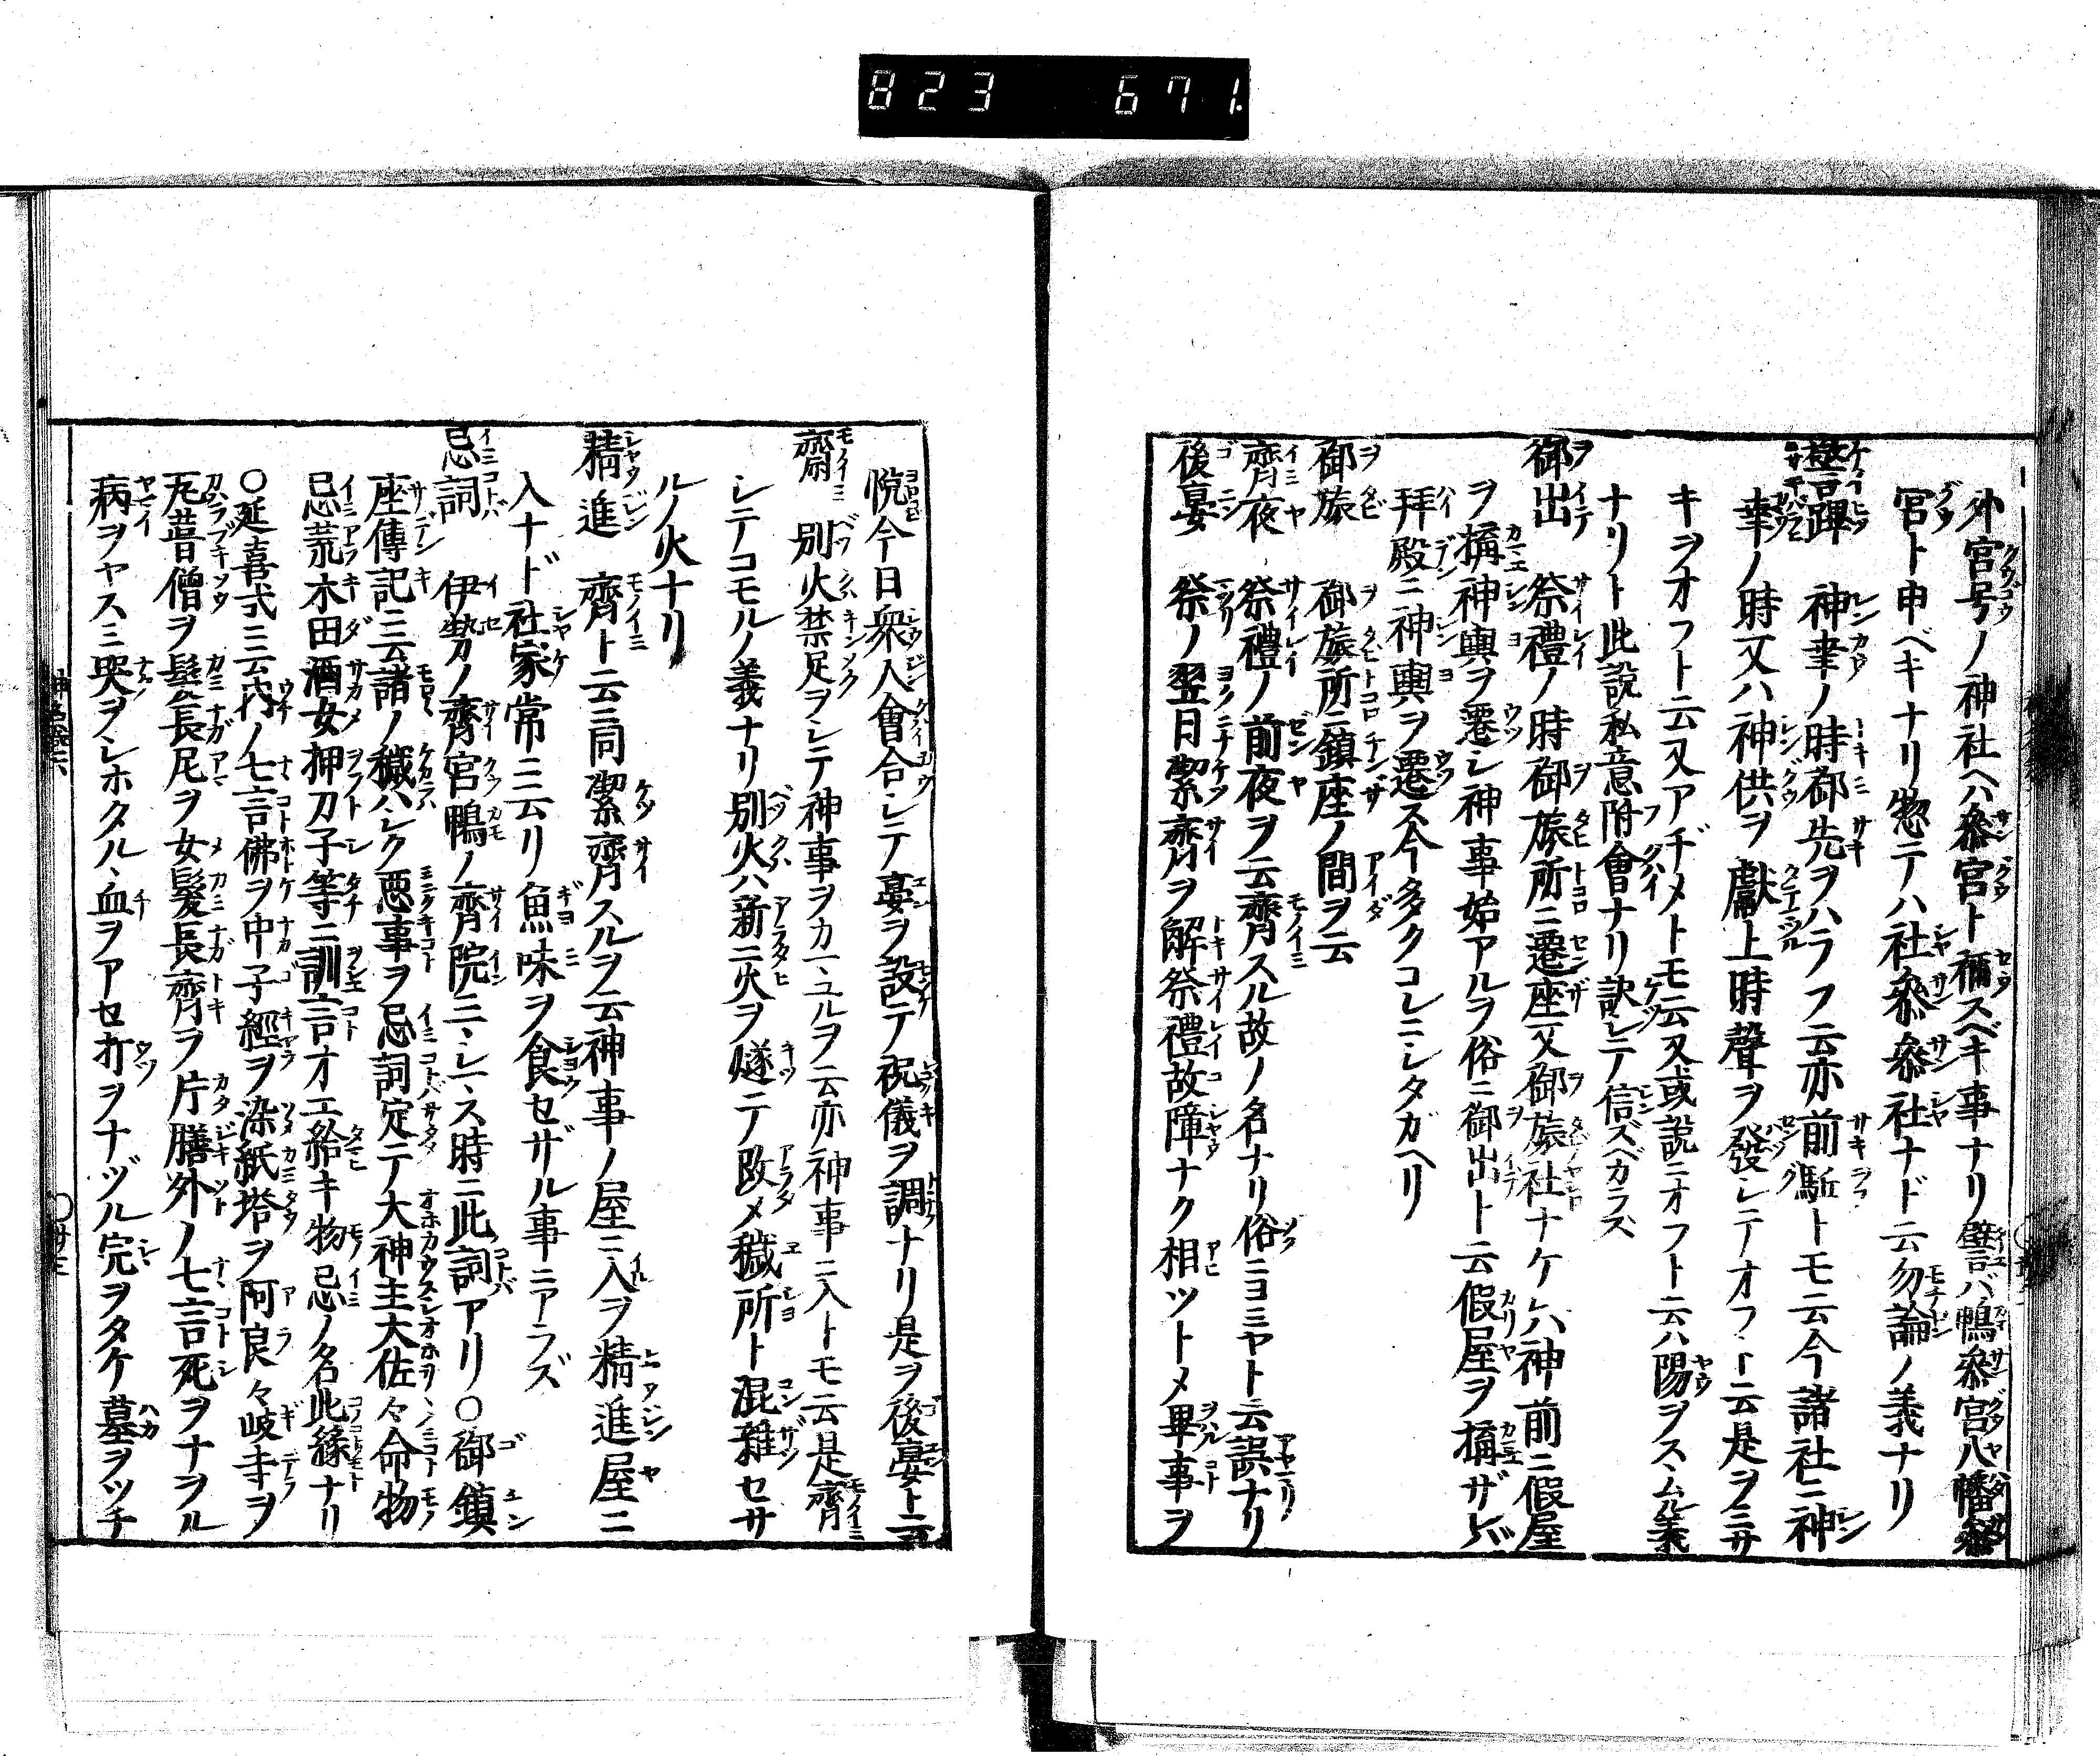 823 671
外宮号ノ神社ヘハ叅宮ト稱スベキ事ナリ譬言バ鴨叅宮八幡叅
宮ト申ベキナリ惣テハ社叅叅社ナド云勿論ノ義ナリ
警蹕 神幸ノ時御先ヲハラフ云亦前駈トモ云今諸社ニ神
幸ノ時又ハ神供ヲ獻上時聲ヲ發レテオフヽト云是ヲミサ
キヲオフト云又アヂメトモ云又或説ニオフト云ハ陽ヲスヽムル義
ナリト此説私意附會ナリ訣レテ信ズベカラス
御出 祭禮ノ時御旅所ニ遷座又御旅社ナケレハ神前ニ假屋
ヲ搆神輿ヲ遷シ神事始アルヲ俗ニ御出ト云假屋ヲ搆ザレバ
拜殿ニ神輿ヲ遷ス今多クコレニシタガヘリ
御旅 御旅所ニ鎮座ノ間ヲ云
齊夜 祭禮ノ前夜ヲ云齊スル故ノ名ナリ俗ニヨミヤト云誤ナリ
後宴 祭ノ翌日潔齊ヲ解祭禮故障ナク相ツトメ畢事ヲ
悦今日衆人會合シテ宴ヲ設テ祝儀ヲ調ナリ是ヲ後宴ト云
齋 別火禁足ヲシテ神事ヲカヽユルヲ云亦神事ニ入トモ云是齊
シテコモルノ義ナリ別火ハ新ニ火ヲ燧テ改メ穢所ト混雜セサ
ルノ火ナリ
精進 齊ト云ニ同潔齊スルヲ云神事ノ屋ニ入ヲ精進屋ニ
入ナド社家常ニ云リ魚味ヲ食セザル事ニアラズ
忌詞 伊勢ノ齊宮鴨ノ齊院ニマシマス時ニ此詞アリ○御鎮
座傳記ニ云諸ノ穢ハシク惡事ヲ忌詞定テ大神主大佐々命物
忌荒木田酒女押刀子等ニ訓言オエ給キ物忌ノ名此縁ナリ
○延喜式ニ云内ノ七言佛ヲ中子經ヲ染紙塔ヲ阿良々岐寺ヲ
瓦葺僧ヲ髮長尼ヲ女髮長齊ヲ片膳外ノ七言死ヲナヲル
病ヲヤスミ哭ヲシホタルヽ血ヲアセ打ヲナヅル宍ヲタケ墓ヲツチ